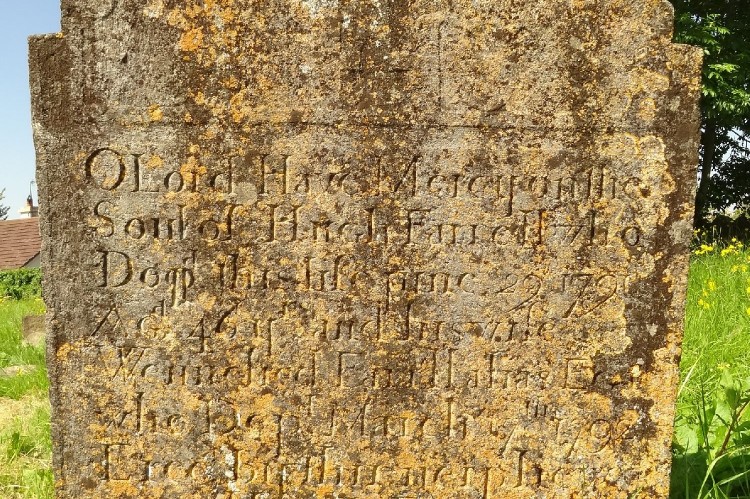 OLord Have Mercy on the
Soul of Hugh Farrell who
Depd this life June 29 179
Agd 46 yrs and his wife
Wennefred Farrell alias
who Depd March 5th 179
Erec by thir